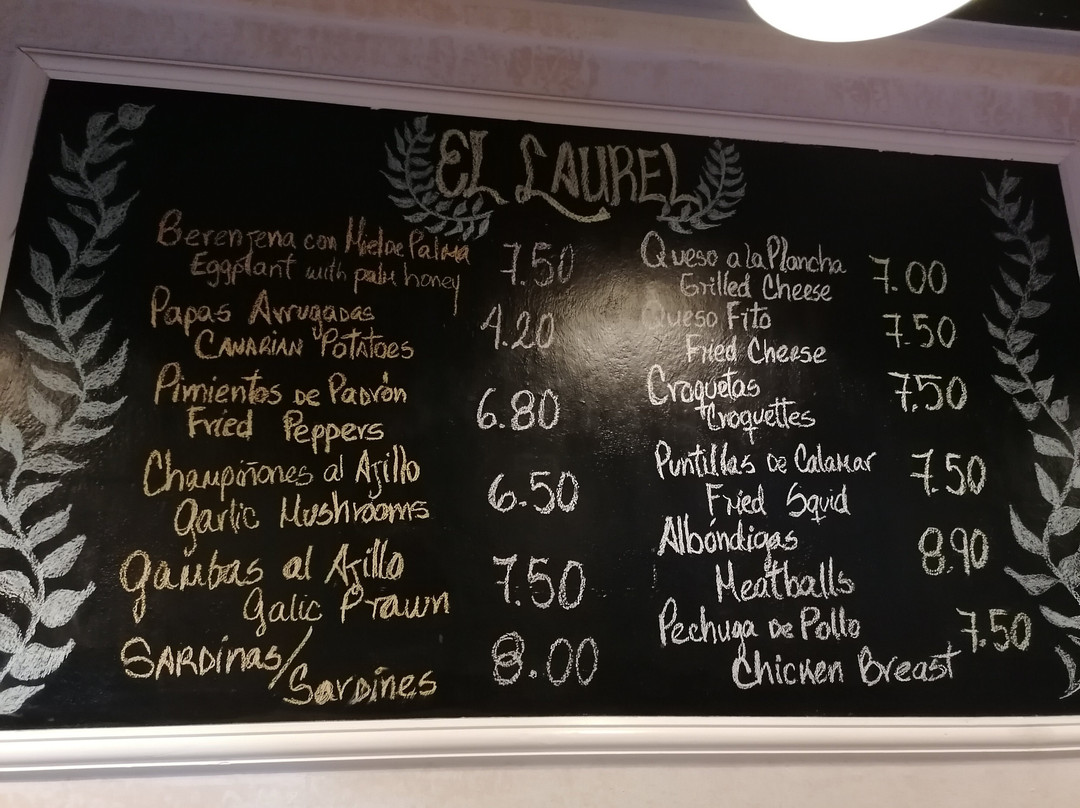 EL LAUREL
Berenjena con Miel de Palma
Eggplant with palm honey
7.50
Papas Arrugadas
CANARIAN POTATOES
4.20
Pimientos de Padrón
Fried Peppers
6.80
Champiñones al Ajillo
Garlic Mushrooms
6.50
Gambas al Ajillo
Galic Prawn
7.50
SARDINAS/
Sardines
8.00
Queso a la Plancha
Grilled Cheese
7.00
Queso Fito
Fried Cheese
7.50
Croquetas
Croquettes
7.50
Puntillas de Calamar
Fried Squid
7.50
Albóndigas
Meatballs
8.90
Pechuga de Pollo
Chicken Breast
7.50